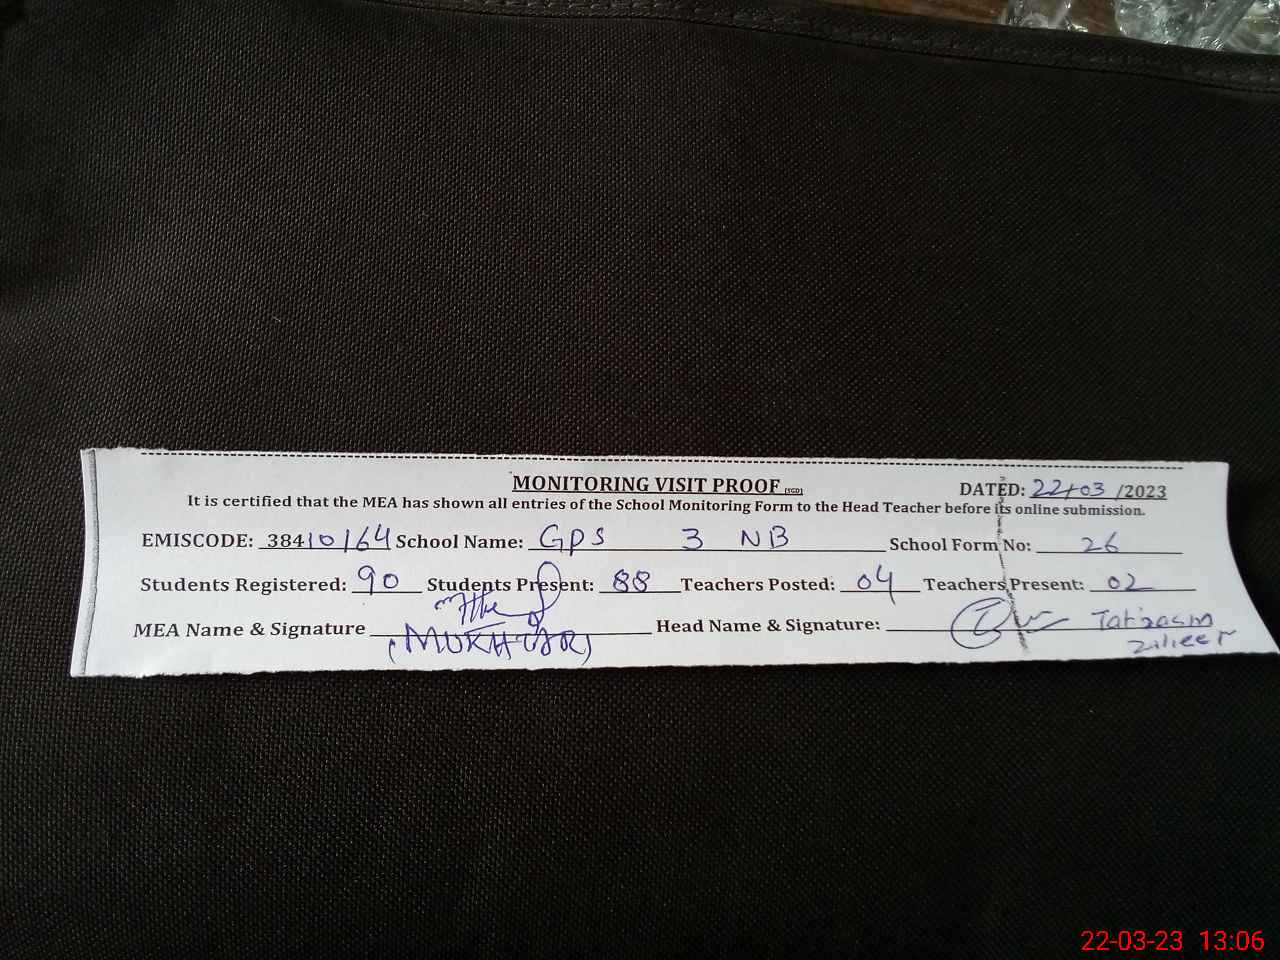 MONITORING VISIT PROOF (SGD)
DATED: 22/03/2023
It is certified that the MEA has shown all entries of the School Monitoring Form to the Head Teacher before its online submission.
EMISCODE: 38410164 School Name: GPS 3 NB School Form No: 26
Students Registered: 90 Students Present: 88 Teachers Posted: 04 Teachers Present: 02
MEA Name & Signature (MUKHTAR) Head Name & Signature:
22-03-23 13:06